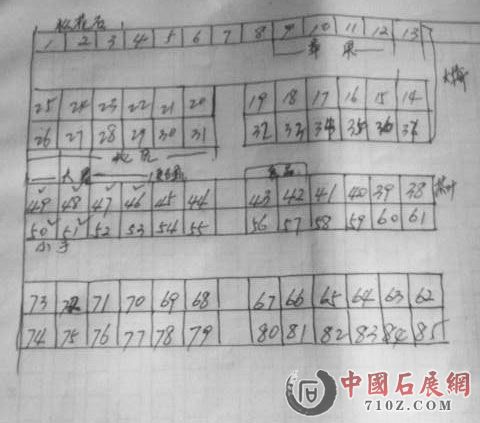 松花石
1 2 3 4 5 6 7 8 9 10 11 12 13
苹果
25 24 23 22 21 20 19 18 17 16 15 14
26 27 28 29 30 31 32 33 34 35 36 37
49 48 47 46 45 44 43 42 41 40 39 38
50 51 52 53 54 55 56 57 58 59 60 61
73 72 71 70 69 68 67 66 65 64 63 62
74 75 76 77 78 79 80 81 82 83 84 85
中國石展網
710Z.COM